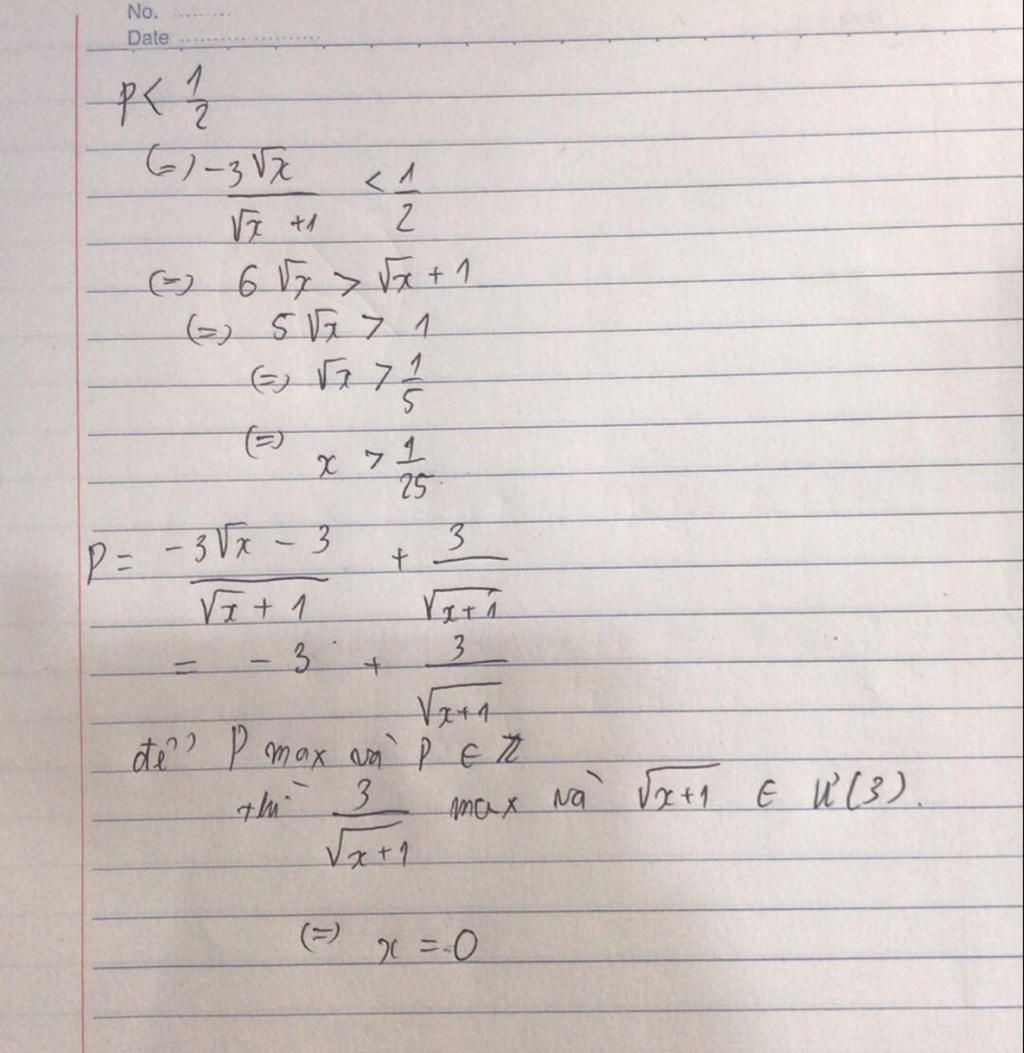 No. ............
Date ............................
P < 1/2
(=) -3√x / (√x + 1) < 1/2
(=) 6√x > √x + 1
(=) 5√x > 1
(=) √x > 1/5
(=) x > 1/25
P = (-3√x - 3) / (√x + 1) + 3 / √(x+1)
= -3 + 3 / √(x+1)
để P max và P ∈ Z
thì 3 / √(x+1) max và √(x+1) ∈ Ư(3).
(=) x = 0